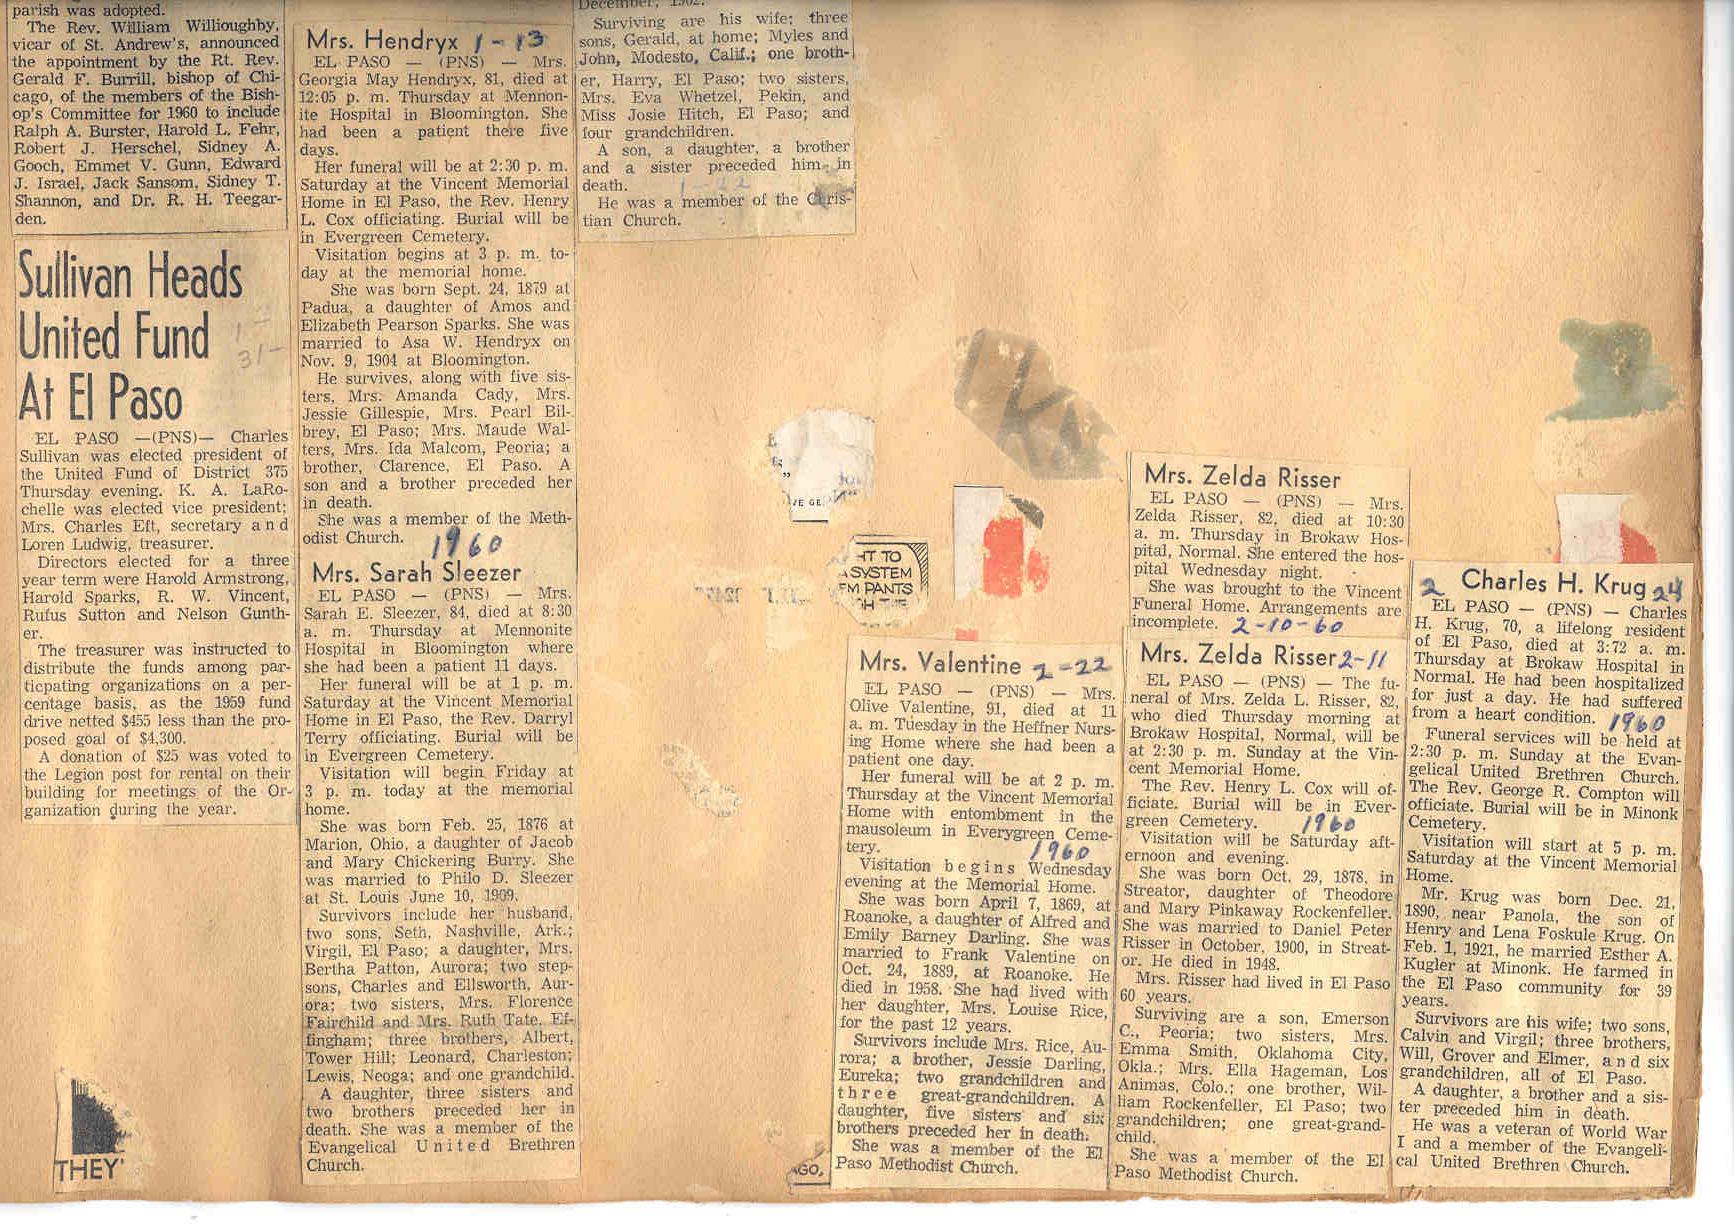 parish was adopted.
The Rev. William Willioughby,
vicar of St. Andrew's, announced
the appointment by the Rt. Rev.
Gerald F. Burrill, bishop of Chi-
cago, of the members of the Bish-
op's Committee for 1960 to include
Ralph A. Burster, Harold L. Fehr,
Robert J. Herschel, Sidney A.
Gooch, Emmet V. Gunn, Edward
J. Israel, Jack Sansom, Sidney T.
Shannon, and Dr. R. H. Teegar-
den.
Sullivan Heads
United Fund
At El Paso
1-
31-
EL PASO —(PNS)— Charles
Sullivan was elected president of
the United Fund of District 375
Thursday evening. K. A. LaRo-
chelle was elected vice president;
Mrs. Charles Eft, secretary and
Loren Ludwig, treasurer.
Directors elected for a three
year term were Harold Armstrong,
Harold Sparks, R. W. Vincent,
Rufus Sutton and Nelson Gunth-
er.
The treasurer was instructed to
distribute the funds among par-
ticpating organizations on a per-
centage basis, as the 1959 fund
drive netted $455 less than the pro-
posed goal of $4,300.
A donation of $25 was voted to
the Legion post for rental on their
building for meetings of the Or-
ganization during the year.
THEY'
Mrs. Hendryx 1-13
EL PASO — (PNS) — Mrs.
Georgia May Hendryx, 81, died at
12:05 p. m. Thursday at Mennon-
ite Hospital in Bloomington. She
had been a patient there five
days.
Her funeral will be at 2:30 p. m.
Saturday at the Vincent Memorial
Home in El Paso, the Rev. Henry
L. Cox officiating. Burial will be
in Evergreen Cemetery.
Visitation begins at 3 p. m. to-
day at the memorial home.
She was born Sept. 24, 1879 at
Padua, a daughter of Amos and
Elizabeth Pearson Sparks. She was
married to Asa W. Hendryx on
Nov. 9, 1904 at Bloomington.
He survives, along with five sis-
ters, Mrs. Amanda Cady, Mrs.
Jessie Gillespie, Mrs. Pearl Bil-
brey, El Paso; Mrs. Maude Wal-
ters, Mrs. Ida Malcom, Peoria; a
brother, Clarence, El Paso. A
son and a brother preceded her
in death.
She was a member of the Meth-
odist Church. 1960
Mrs. Sarah Sleezer
EL PASO — (PNS) — Mrs.
Sarah E. Sleezer, 84, died at 8:30
a. m. Thursday at Mennonite
Hospital in Bloomington where
she had been a patient 11 days.
Her funeral will be at 1 p. m.
Saturday at the Vincent Memorial
Home in El Paso, the Rev. Darryl
Terry officiating. Burial will be
in Evergreen Cemetery.
Visitation will begin Friday at
3 p. m. today at the memorial
home.
She was born Feb. 25, 1876 at
Marion, Ohio, a daughter of Jacob
and Mary Chickering Burry. She
was married to Philo D. Sleezer
at St. Louis June 10, 1909.
Survivors include her husband,
two sons, Seth, Nashville, Ark.;
Virgil, El Paso; a daughter, Mrs.
Bertha Patton, Aurora; two step-
sons, Charles and Ellsworth, Aur-
ora; two sisters, Mrs. Florence
Fairchild and Mrs. Ruth Tate, Ef-
fingham; three brothers, Albert,
Tower Hill; Leonard, Charleston;
Lewis, Neoga; and one grandchild.
A daughter, three sisters and
two brothers preceded her in
death. She was a member of the
Evangelical United Brethren
Church.
December, 1962.
Surviving are his wife; three
sons, Gerald, at home; Myles and
John, Modesto, Calif.; one broth-
er, Harry, El Paso; two sisters,
Mrs. Eva Whetzel, Pekin, and
Miss Josie Hitch, El Paso; and
four grandchildren.
A son, a daughter, a brother
and a sister preceded him in
death. 1-22
He was a member of the Chris-
tian Church.
HT TO
SYSTEM
EM PANTS
GH THE
AGO,
Mrs. Valentine 2-22
EL PASO — (PNS) — Mrs.
Olive Valentine, 91, died at 11
a. m. Tuesday in the Heffner Nurs-
ing Home where she had been a
patient one day.
Her funeral will be at 2 p. m.
Thursday at the Vincent Memorial
Home with entombment in the
mausoleum in Everygreen Ceme-
tery. 1960
Visitation begins Wednesday
evening at the Memorial Home.
She was born April 7, 1869, at
Roanoke, a daughter of Alfred and
Emily Barney Darling. She was
married to Frank Valentine on
Oct. 24, 1889, at Roanoke. He
died in 1958. She had lived with
her daughter, Mrs. Louise Rice,
for the past 12 years.
Survivors include Mrs. Rice, Au-
rora; a brother, Jessie Darling,
Eureka; two grandchildren and
three great-grandchildren. A
daughter, five sisters and six
brothers preceded her in death.
She was a member of the El
Paso Methodist Church.
Mrs. Zelda Risser
EL PASO — (PNS) — Mrs.
Zelda Risser, 82, died at 10:30
a. m. Thursday in Brokaw Hos-
pital, Normal. She entered the hos-
pital Wednesday night.
She was brought to the Vincent
Funeral Home. Arrangements are
incomplete. 2-10-60
Mrs. Zelda Risser 2-11
EL PASO — (PNS) — The fu-
neral of Mrs. Zelda L. Risser, 82,
who died Thursday morning at
Brokaw Hospital, Normal, will be
at 2:30 p. m. Sunday at the Vin-
cent Memorial Home.
The Rev. Henry L. Cox will of-
ficiate. Burial will be in Ever-
green Cemetery. 1960
Visitation will be Saturday aft-
ernoon and evening.
She was born Oct. 29, 1878, in
Streator, daughter of Theodore
and Mary Pinkaway Rockenfeller.
She was married to Daniel Peter
Risser in October, 1900, in Streat-
or. He died in 1948.
Mrs. Risser had lived in El Paso
60 years.
Surviving are a son, Emerson
C., Peoria; two sisters, Mrs.
Emma Smith, Oklahoma City,
Okla.; Mrs. Ella Hageman, Los
Animas, Colo.; one brother, Wil-
liam Rockenfeller, El Paso; two
grandchildren; one great-grand-
child.
She was a member of the El
Paso Methodist Church.
2 Charles H. Krug 24
EL PASO — (PNS) — Charles
H. Krug, 70, a lifelong resident
of El Paso, died at 3:72 a. m.
Thursday at Brokaw Hospital in
Normal. He had been hospitalized
for just a day. He had suffered
from a heart condition. 1960
Funeral services will be held at
2:30 p. m. Sunday at the Evan-
gelical United Brethren Church.
The Rev. George R. Compton will
officiate. Burial will be in Minonk
Cemetery.
Visitation will start at 5 p. m.
Saturday at the Vincent Memorial
Home.
Mr. Krug was born Dec. 21,
1890, near Panola, the son of
Henry and Lena Foskule Krug. On
Feb. 1, 1921, he married Esther A.
Kugler at Minonk. He farmed in
the El Paso community for 39
years.
Survivors are his wife; two sons,
Calvin and Virgil; three brothers,
Will, Grover and Elmer, and six
grandchildren, all of El Paso.
A daughter, a brother and a sis-
ter preceded him in death.
He was a veteran of World War
I and a member of the Evangeli-
cal United Brethren Church.